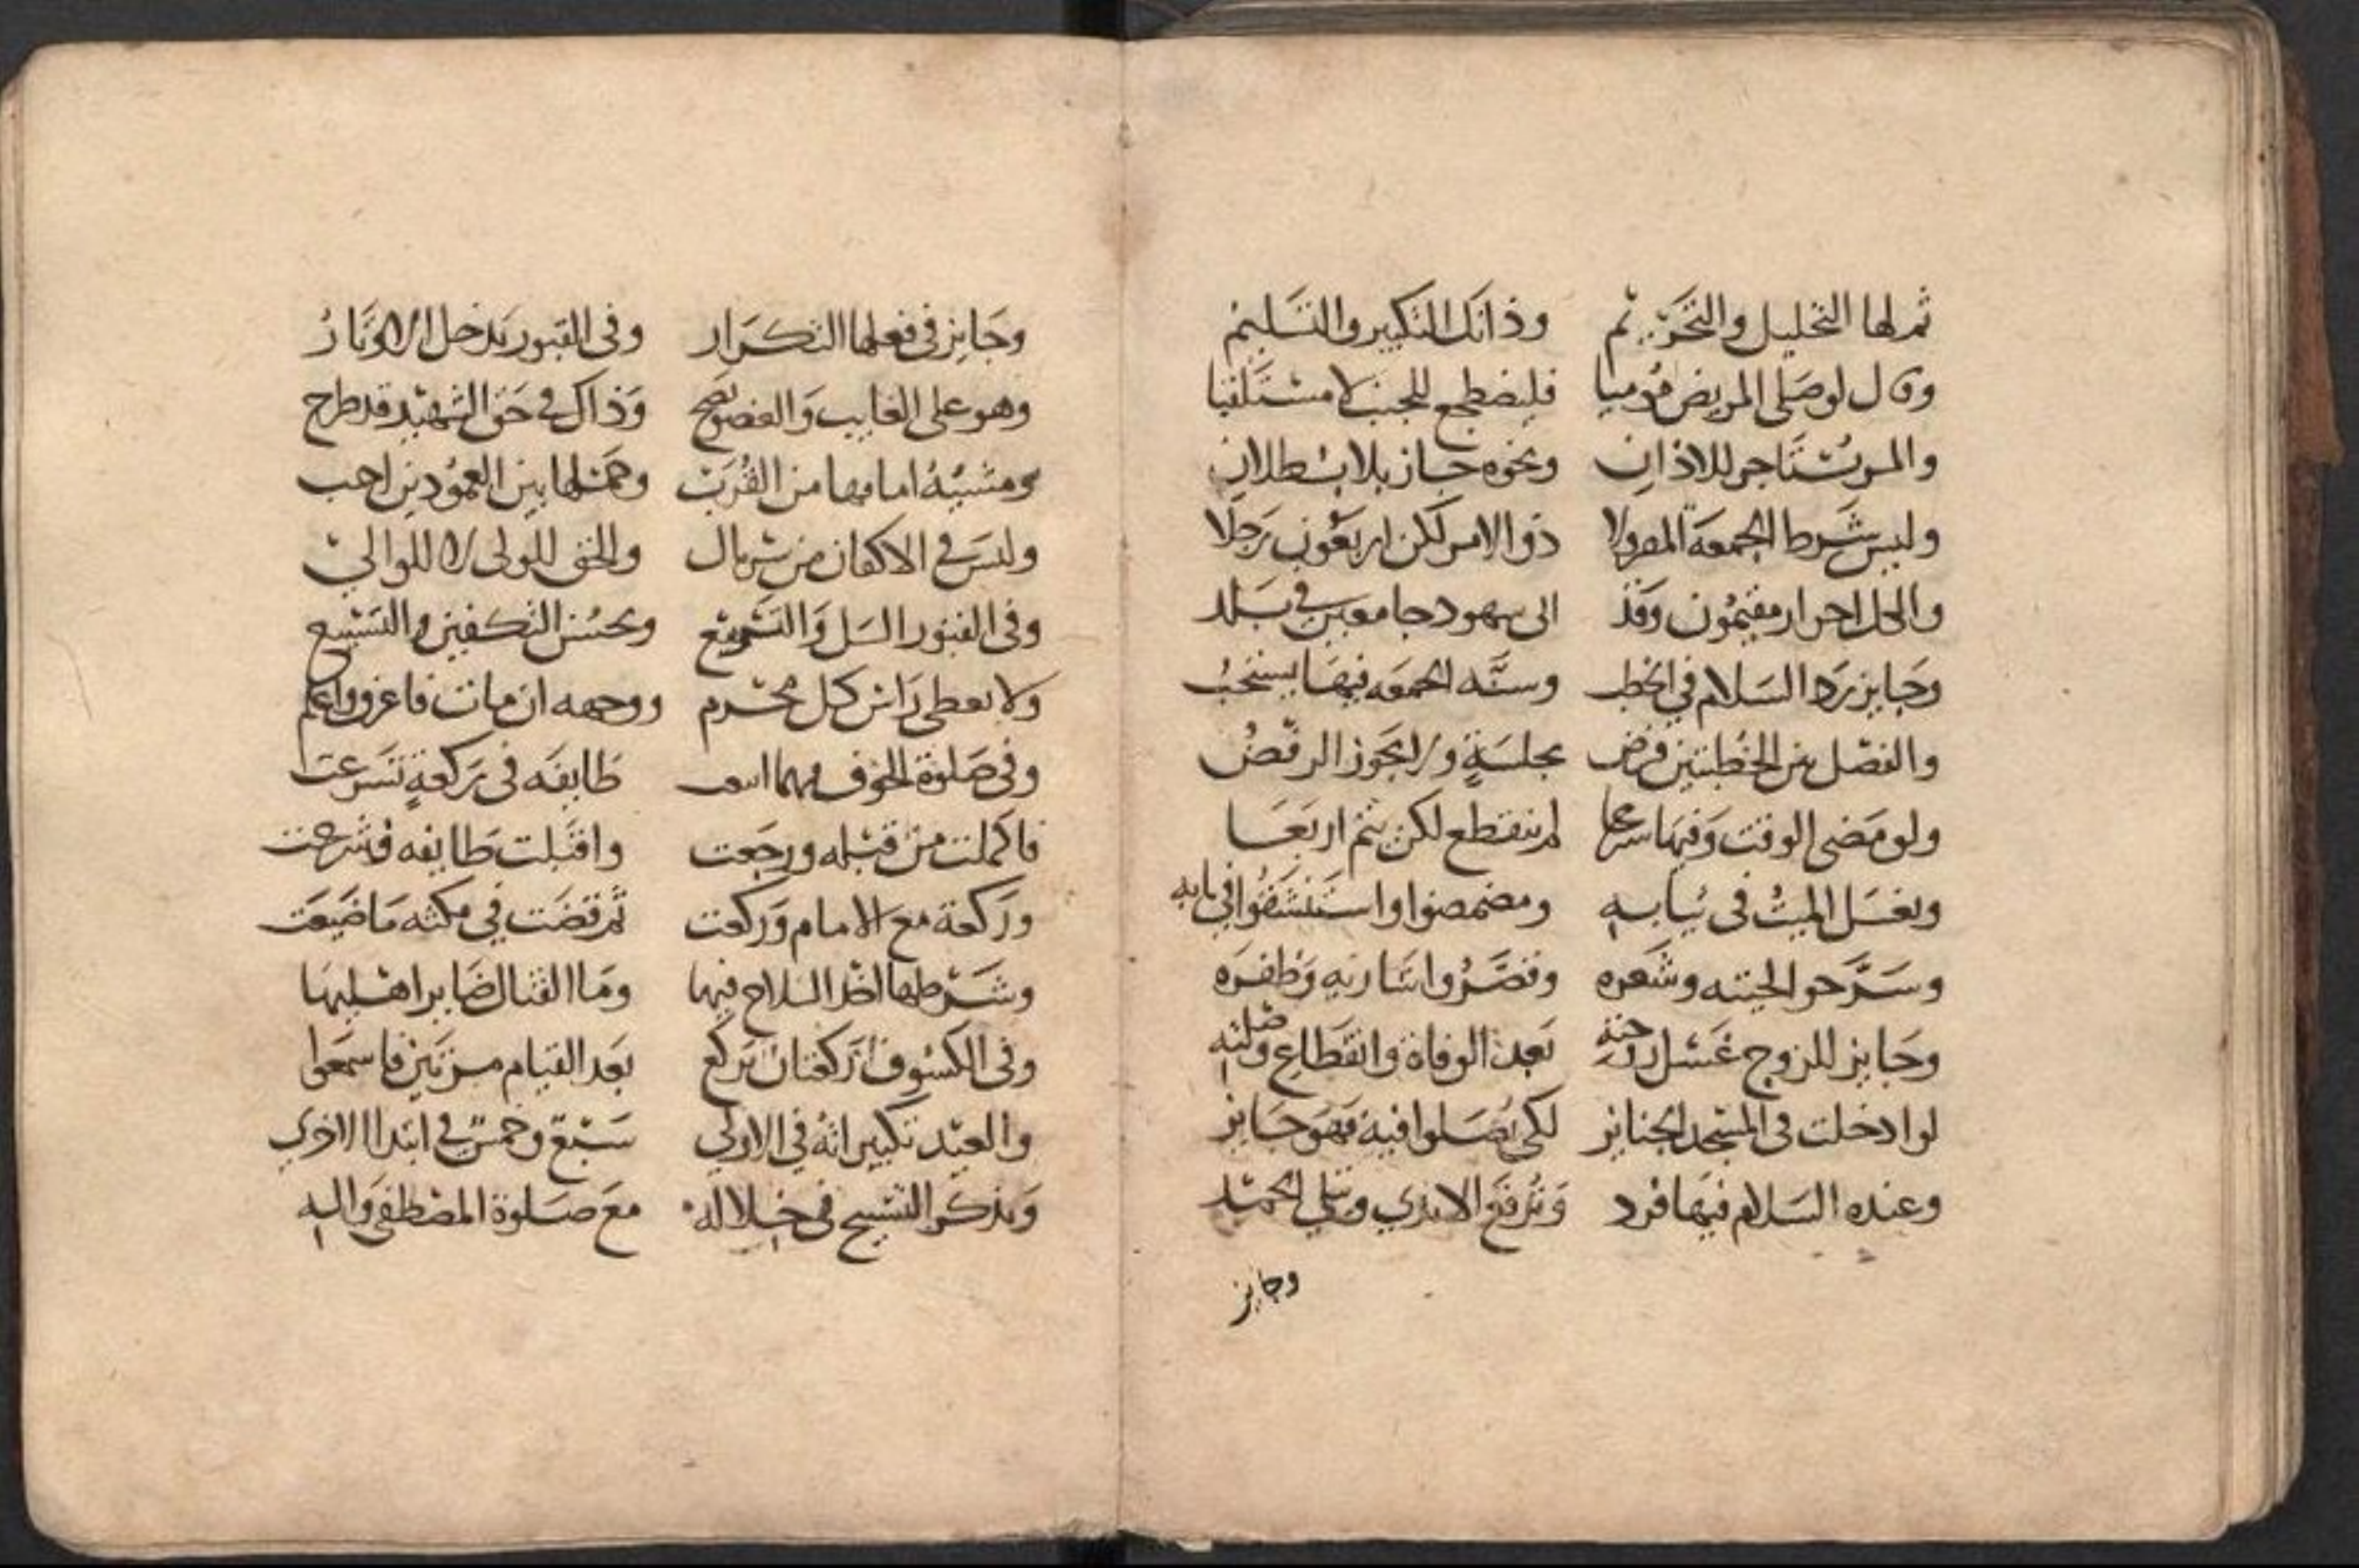 ثم لها التحليل والتحريم وذانك التكبير والتسليم
وقال لو صلى المريض موميا فليضطجع للجنب لا مستلقيا
والمرء يستاجر للاذان ونحوه جاز بلا بطلان
وليس شرط الجمعة المصر ولا ذو الامر لكن اربعون رجلا
والكل احرار مقيمون وقد الى جامعين في بلد
وجايز رد السلام في الخطب وسنه الجمعه فيها يستحب
والفصل بين الخطبتين فرض بجلسة ولا يجوز الرفض
ولو مضى الوقت وفيها شرعا لم ينقطع لكن يتم اربعا
ويغسل الميت في ثيابه ومضمضوا واستنشقوا في بابه
وسرحوا لحيته وشعره وقصروا شاربه وظفره
وجايز للزوج غسل زوجته بعد الوفاة وانقطاع وصلته
لو ادخلت في المسجد الجنايز لكي يصلوا فيه فهو جايز
وعنده السلام فيها فرد وترفع الايدي ويتلى الحمد
وجايز
وجايز في فعلها التكرار وفي القبور يدخل الاوتار
وهو على الغايب والعضو يصح وذاك في حق الشهيد قد طرح
ومشيه امامها من القرب وحملها بين العمودين احب
وليس في الاكفان من سربال والحق للولي لا للوالي
وفي القبور السل والتسطيح ويحسن التكفين والتسبيح
ولا يغطى راس كل محرم ووجهه ان مات فاعرف واعلم
وفي صلوة الخوف مهما طايفه في ركعة تسرعت
فاكملت من قبله ورجعت واقبلت طايفه فشرعت
وركعة مع الامام وركعت ثم قضت في مكثه ما ضيعت
وشرطها اخذ السلاح فيها وما القتال ضايرا هليها
وفي الكسوف ركعتان تركع بعد القيام مرتين فاسمعوا
والعيد تكبيراته في الاولى سبع وخمس في ابتدا الاخرى
ويذكر التسبيح في خلاله مع صلوة المصطفى واله